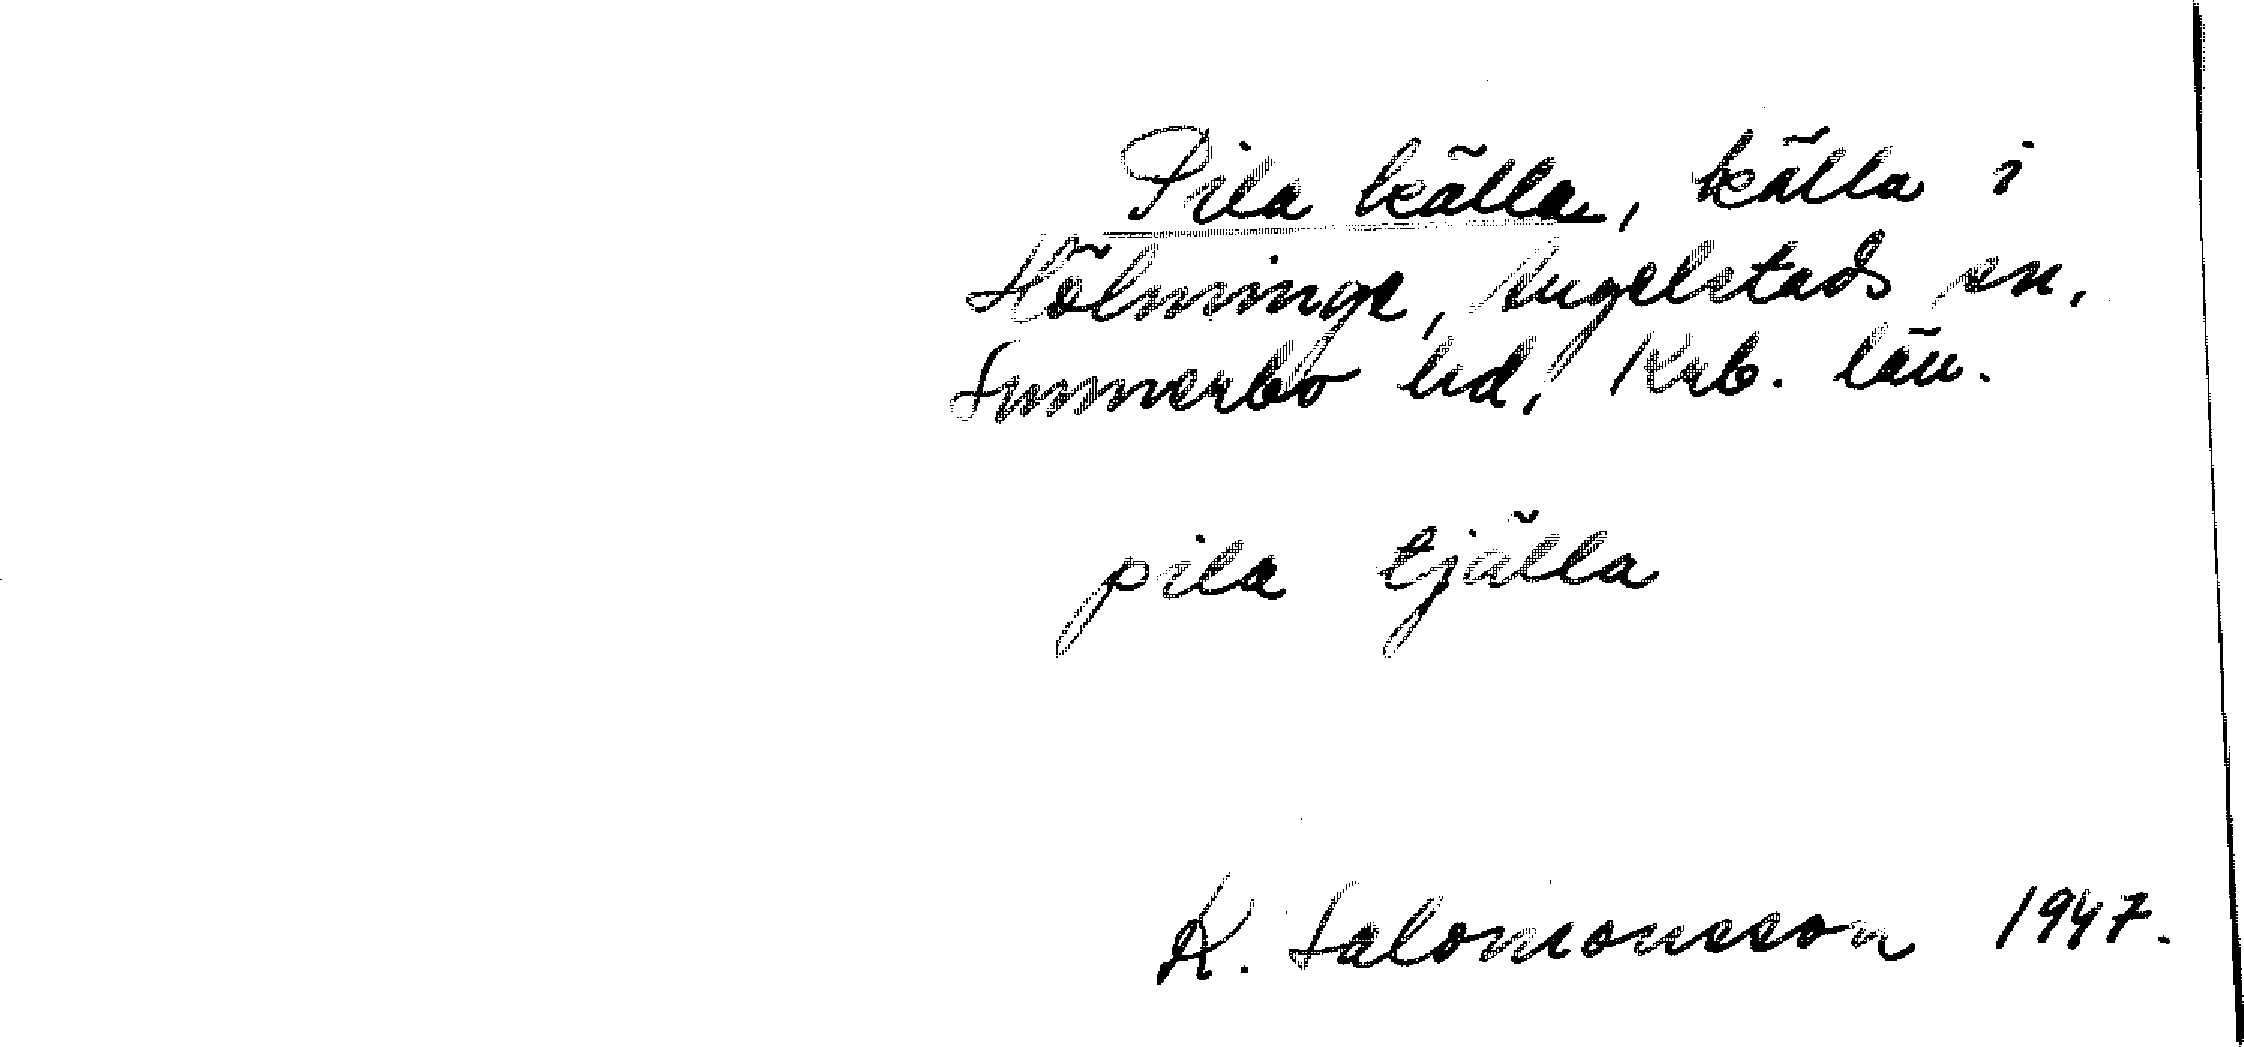 Pila källa, källa i
Hölminge, Angelstads sn.
Sunnerbo hd, Krb. län.
pila tjälla
K. Salomonsson 1947.